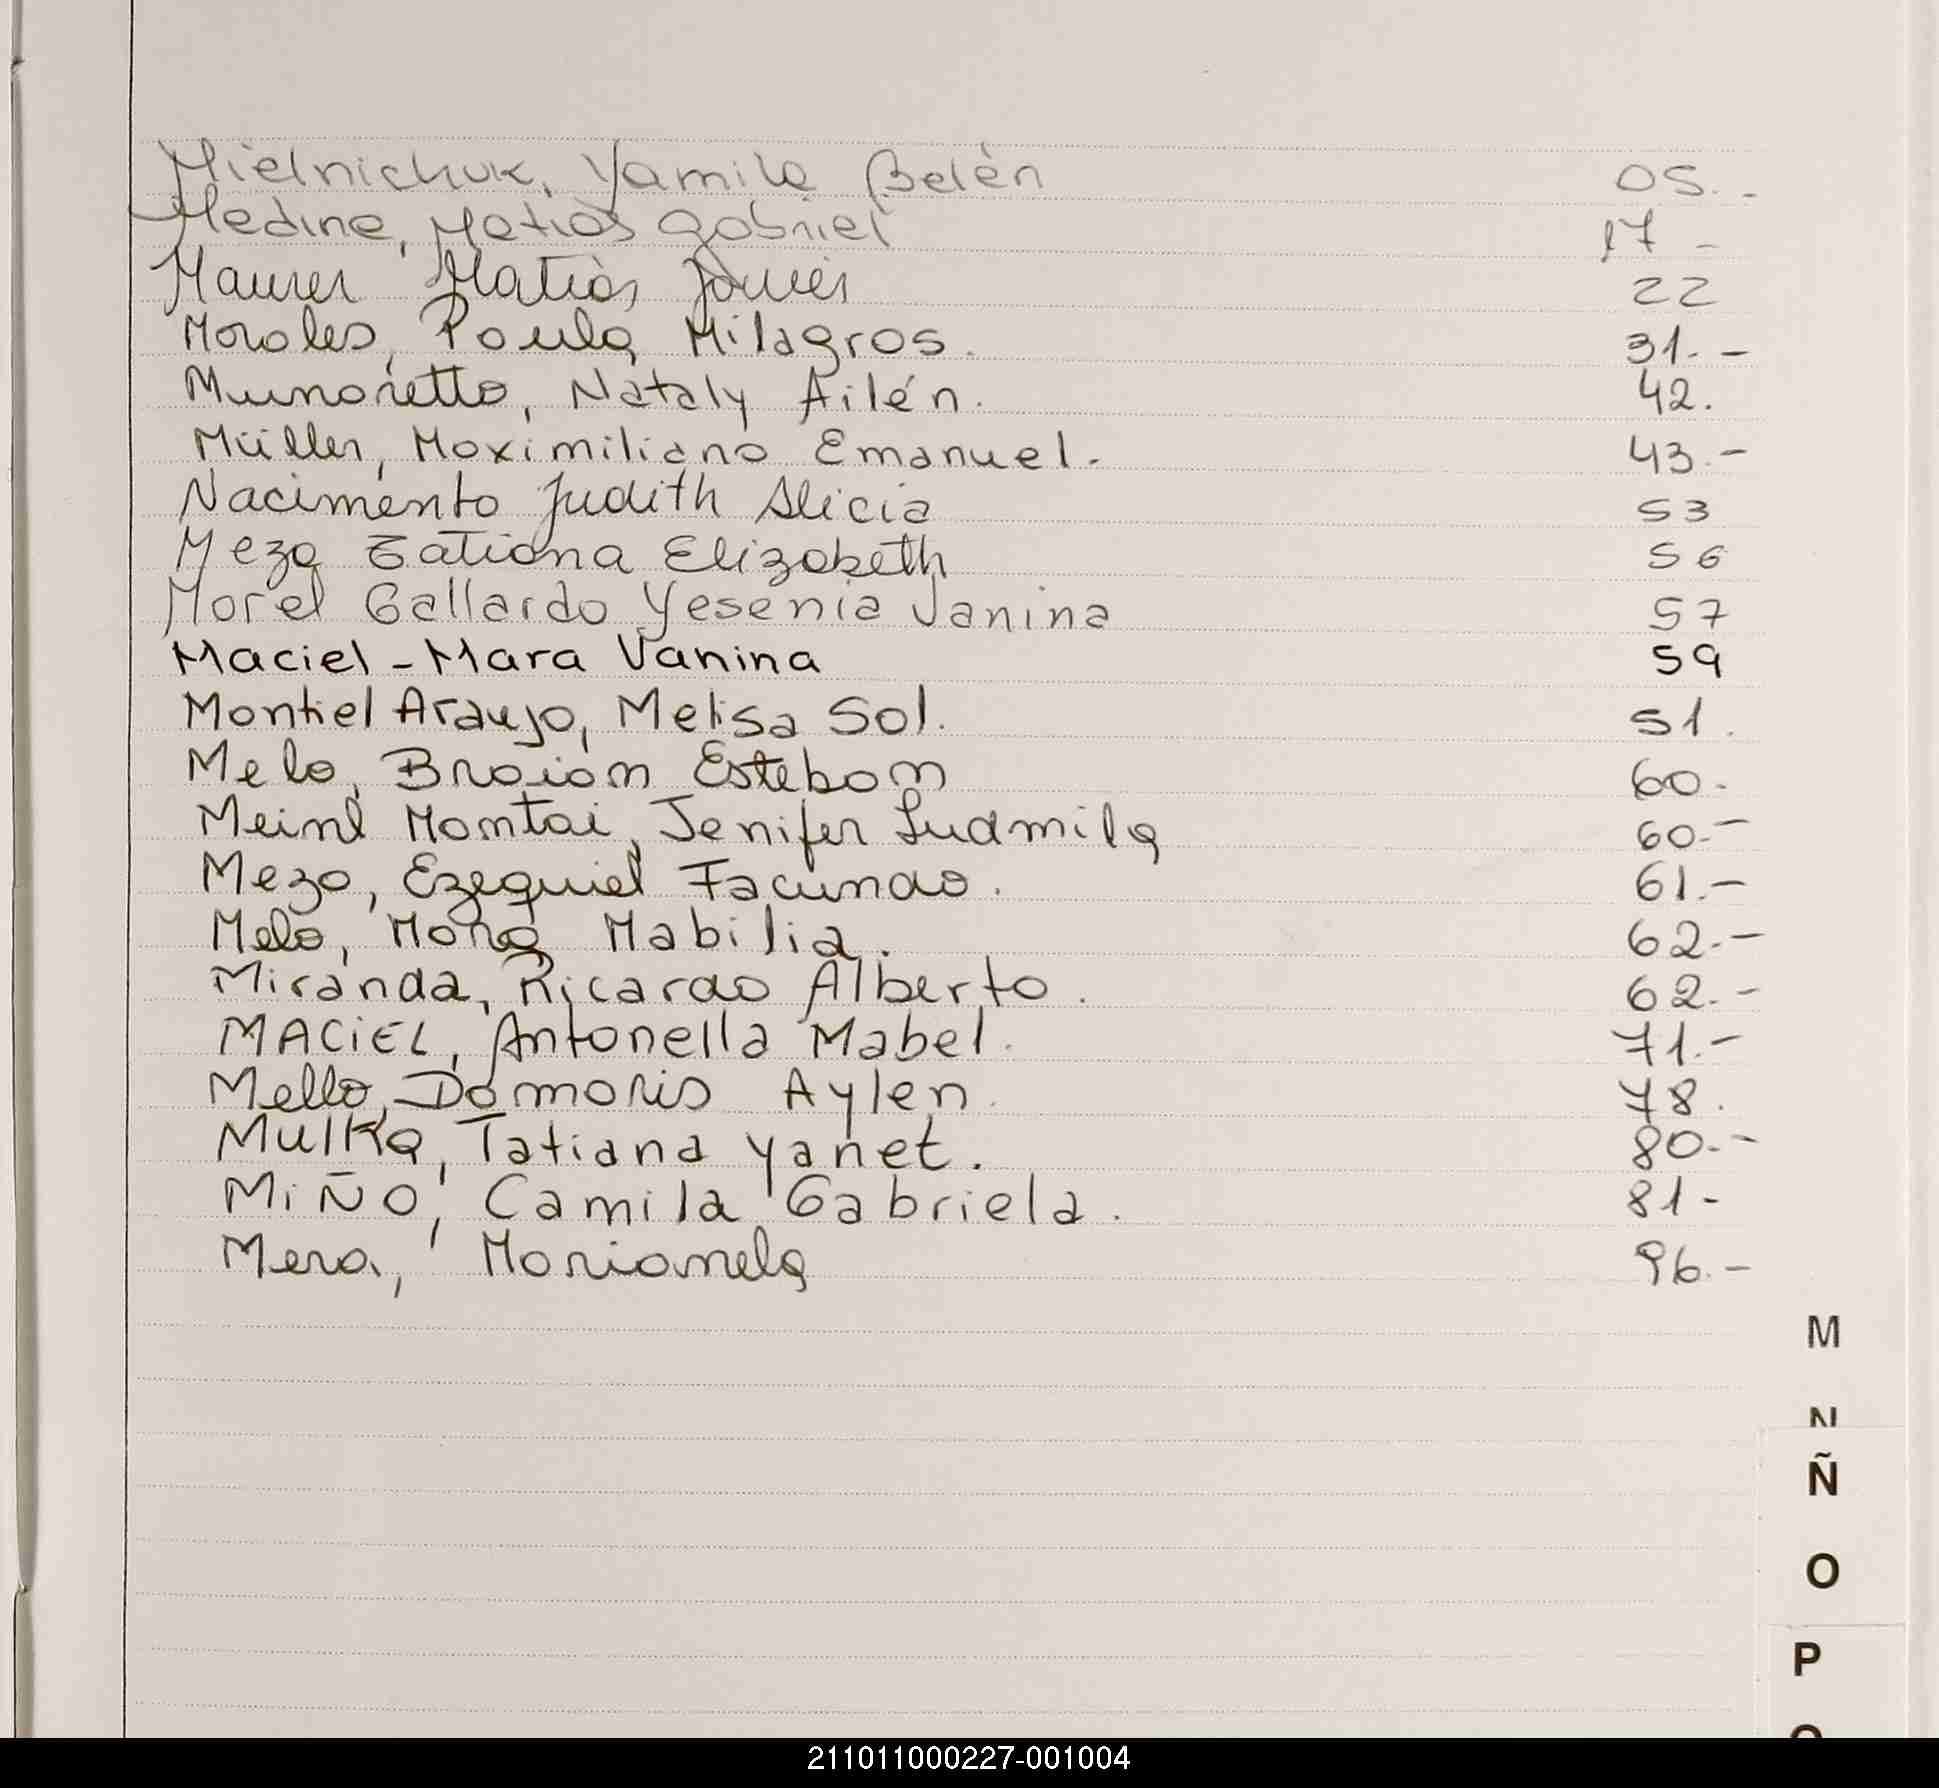 Mielnichuk, Yamila Belén 05.-
Medina, Matias Gabriel 17 -
Maurer Matías Javier 22
Morales, Paula Milagros. 31.-
Munaretto, Nataly Ailén. 42.
Müller, Maximiliano Emanuel. 43.-
Nacimento Judith Alicia 53
Meza Tatiana Elizabeth 56
Morel Gallardo Yesenia Janina 57
Maciel - Mara Vanina 59
Montiel Araujo, Melisa Sol. 51.
Melo, Braian Esteban 60.
Meinl Montai, Jenifer Ludmila 60.-
Mezo, Ezequiel Facundo. 61.-
Melo, Maria Mabilia. 62.-
Miranda, Ricardo Alberto. 62.-
MACiEL, Antonella Mabel. 71.-
Mello, Damaris Aylen. 78.
Mulka, Tatiana Yanet. 80.-
MiÑO, Camila Gabriela. 81-
Mera, Marianela 96.-
M
N
Ñ
O
P
211011000227-001004